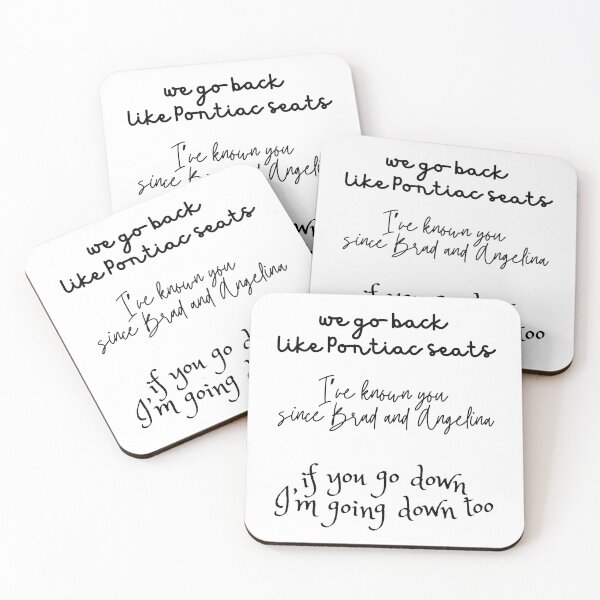 we go back
like Pontiac seats
I've known you
since Brad and
we go back
like Pontiac seats
I've known you
since Brad and Angelina
if you go down
too
we go back
like Pontiac seats
I've known you
since Brad and Angelina
if you go
I'm going
we go back
like Pontiac seats
I've known you
since Brad and Angelina
if you go down
I'm going down too